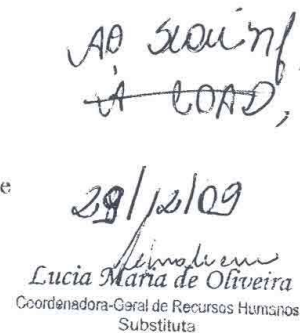 À COAD,
e
29/12/09
Lucia Maria de Oliveira
Coordenadora-Geral de Recursos Humanos
Substituta